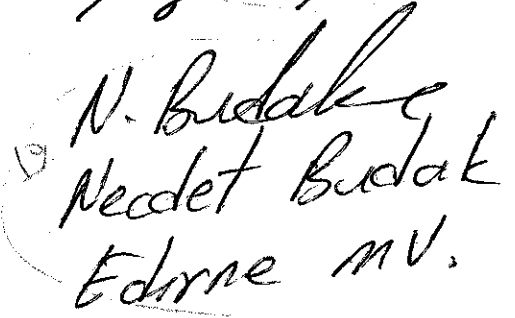 N. Budak
Necdet Budak
Edirne mv.